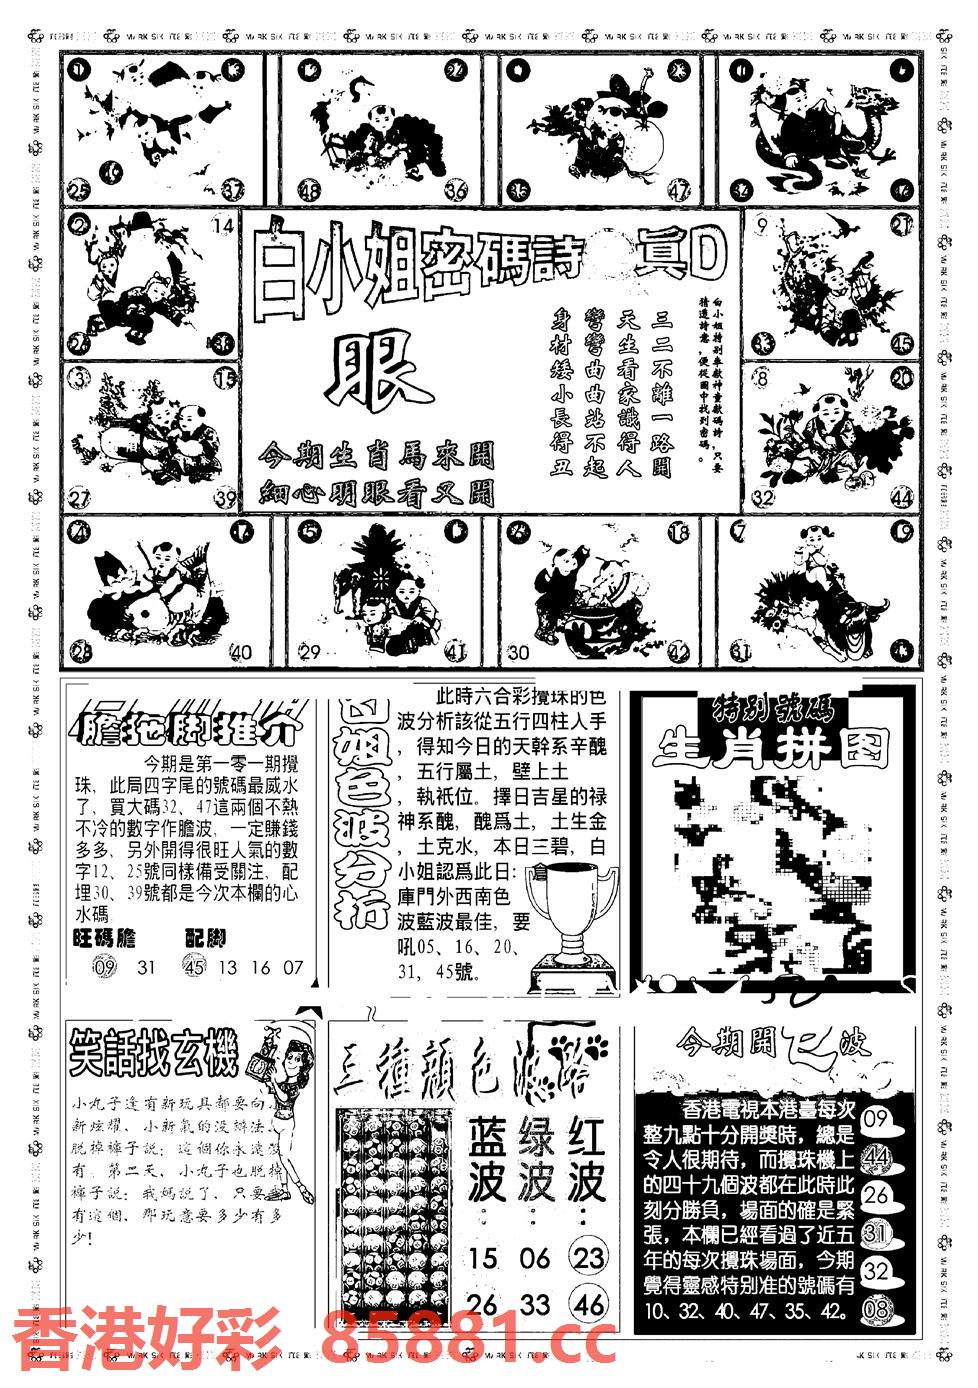 白小姐密碼詩 真D
眼
今期生肖馬來開
細心明眼看又開
白小姐特别奉獻神童數碼詩，只要
猜透詩意，便從圖中找到密碼。
三二不離一路開
天生看家識得人
彎彎曲曲站不起
身材矮小長得丑
25 49 37
48 36
35 47
2 14
26 38
9 21
33 45
3 15
27 39
8 20
32 44
4
28 40
5
29 41
18
30 42
7 19
31
膽拖脚推介
今期是第一零一期攪
珠，此局四字尾的號碼最威水
了，買大碼32、47這兩個不熱
不冷的數字作膽波，一定賺錢
多多，另外開得很旺人氣的數
字12、25號同樣備受關注，配
埋30、39號都是今次本欄的心
水碼
旺碼膽 配脚
09 31 45 13 16 07
白姐色波分析
此時六合彩攪珠的色
波分析該從五行四柱人手
，得知今日的天幹系辛醜
，五行屬土，壁上土
，執衹位。擇日吉星的禄
神系醜，醜爲土，土生金
，土克水，本日三碧，白
小姐認爲此日：倉
庫門外西南色
波藍波最佳，要
吼05、16、20、
31、45號。
特别號碼
生肖拼图
笑話找玄機
小丸子逢有新玩具都要向
新炫耀、小新氣的没辦法、
脱掉褲子説：這個你永遠没
有、第二天、小丸子也脱掉
褲子説：我媽説了、只要
有這個、那玩意要多少有多
少！
三種顔色波路
蓝波： 绿波： 红波：
15 06 23
26 33 46
今期開 波
香港電視本港臺每次
整九點十分開獎時，總是
令人很期待，而攪珠機上
的四十九個波都在此時此
刻分勝負，場面的確是緊
張，本欄已經看過了近五
年的每次攪珠場面，今期
覺得靈感特别准的號碼有
10、32、40、47、35、42。
09
44
26
31
32
08
香港好彩 85881.cc